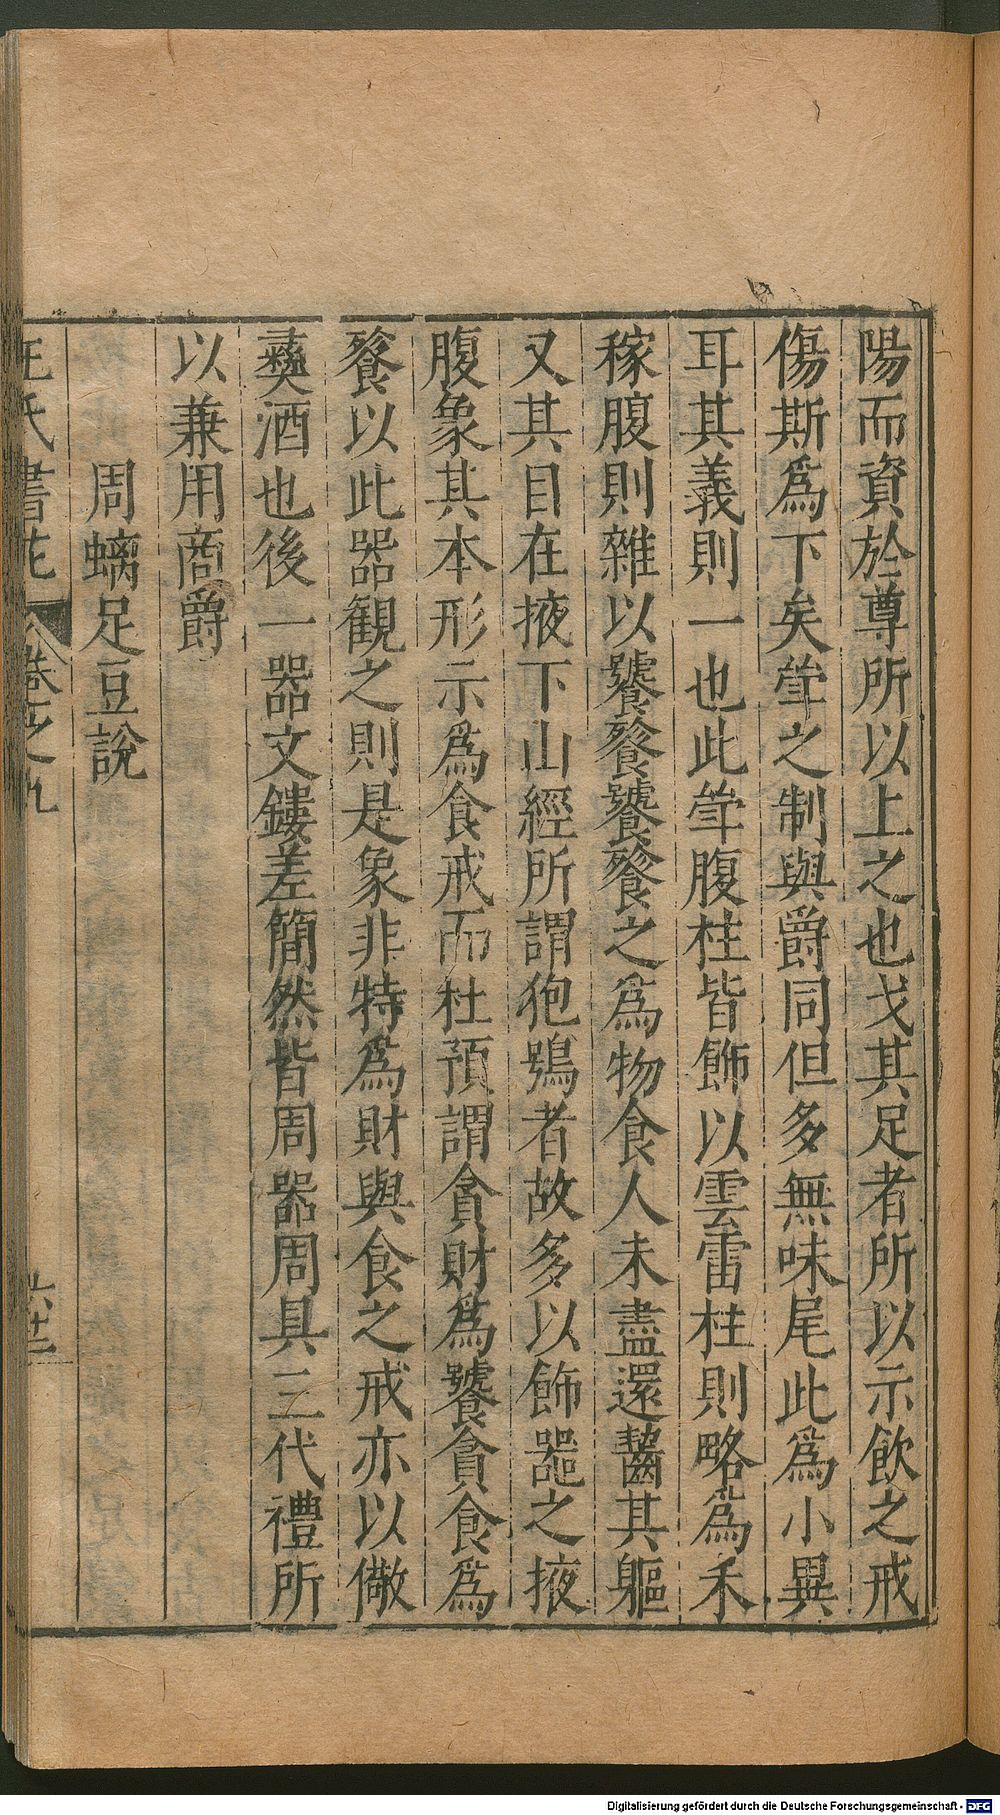 陽而資於尊所以上之也戈其足者所以示飲之戒
傷斯為下矣斝之制與爵同但多無味尾此為小異
耳其義則一也此斝腹柱皆飾以雲雷柱則略為禾
稼腹則雜以饕餮饕餮之為物食人未盡還齧其軀
又其目在掖下山經所謂狍鴞者故多以飾器之掖
腹象其本形示為食戒而杜預謂貪財為饕貪食為
餮以此器觀之則是象非特為財與食之戒亦以儆
彞酒也後一器文鏤差簡然皆周器周具三代禮所
以兼用商爵
周螭足豆說
王氏書苑 卷之九 六十二
Digitalisierung gefördert durch die Deutsche Forschungsgemeinschaft - DFG